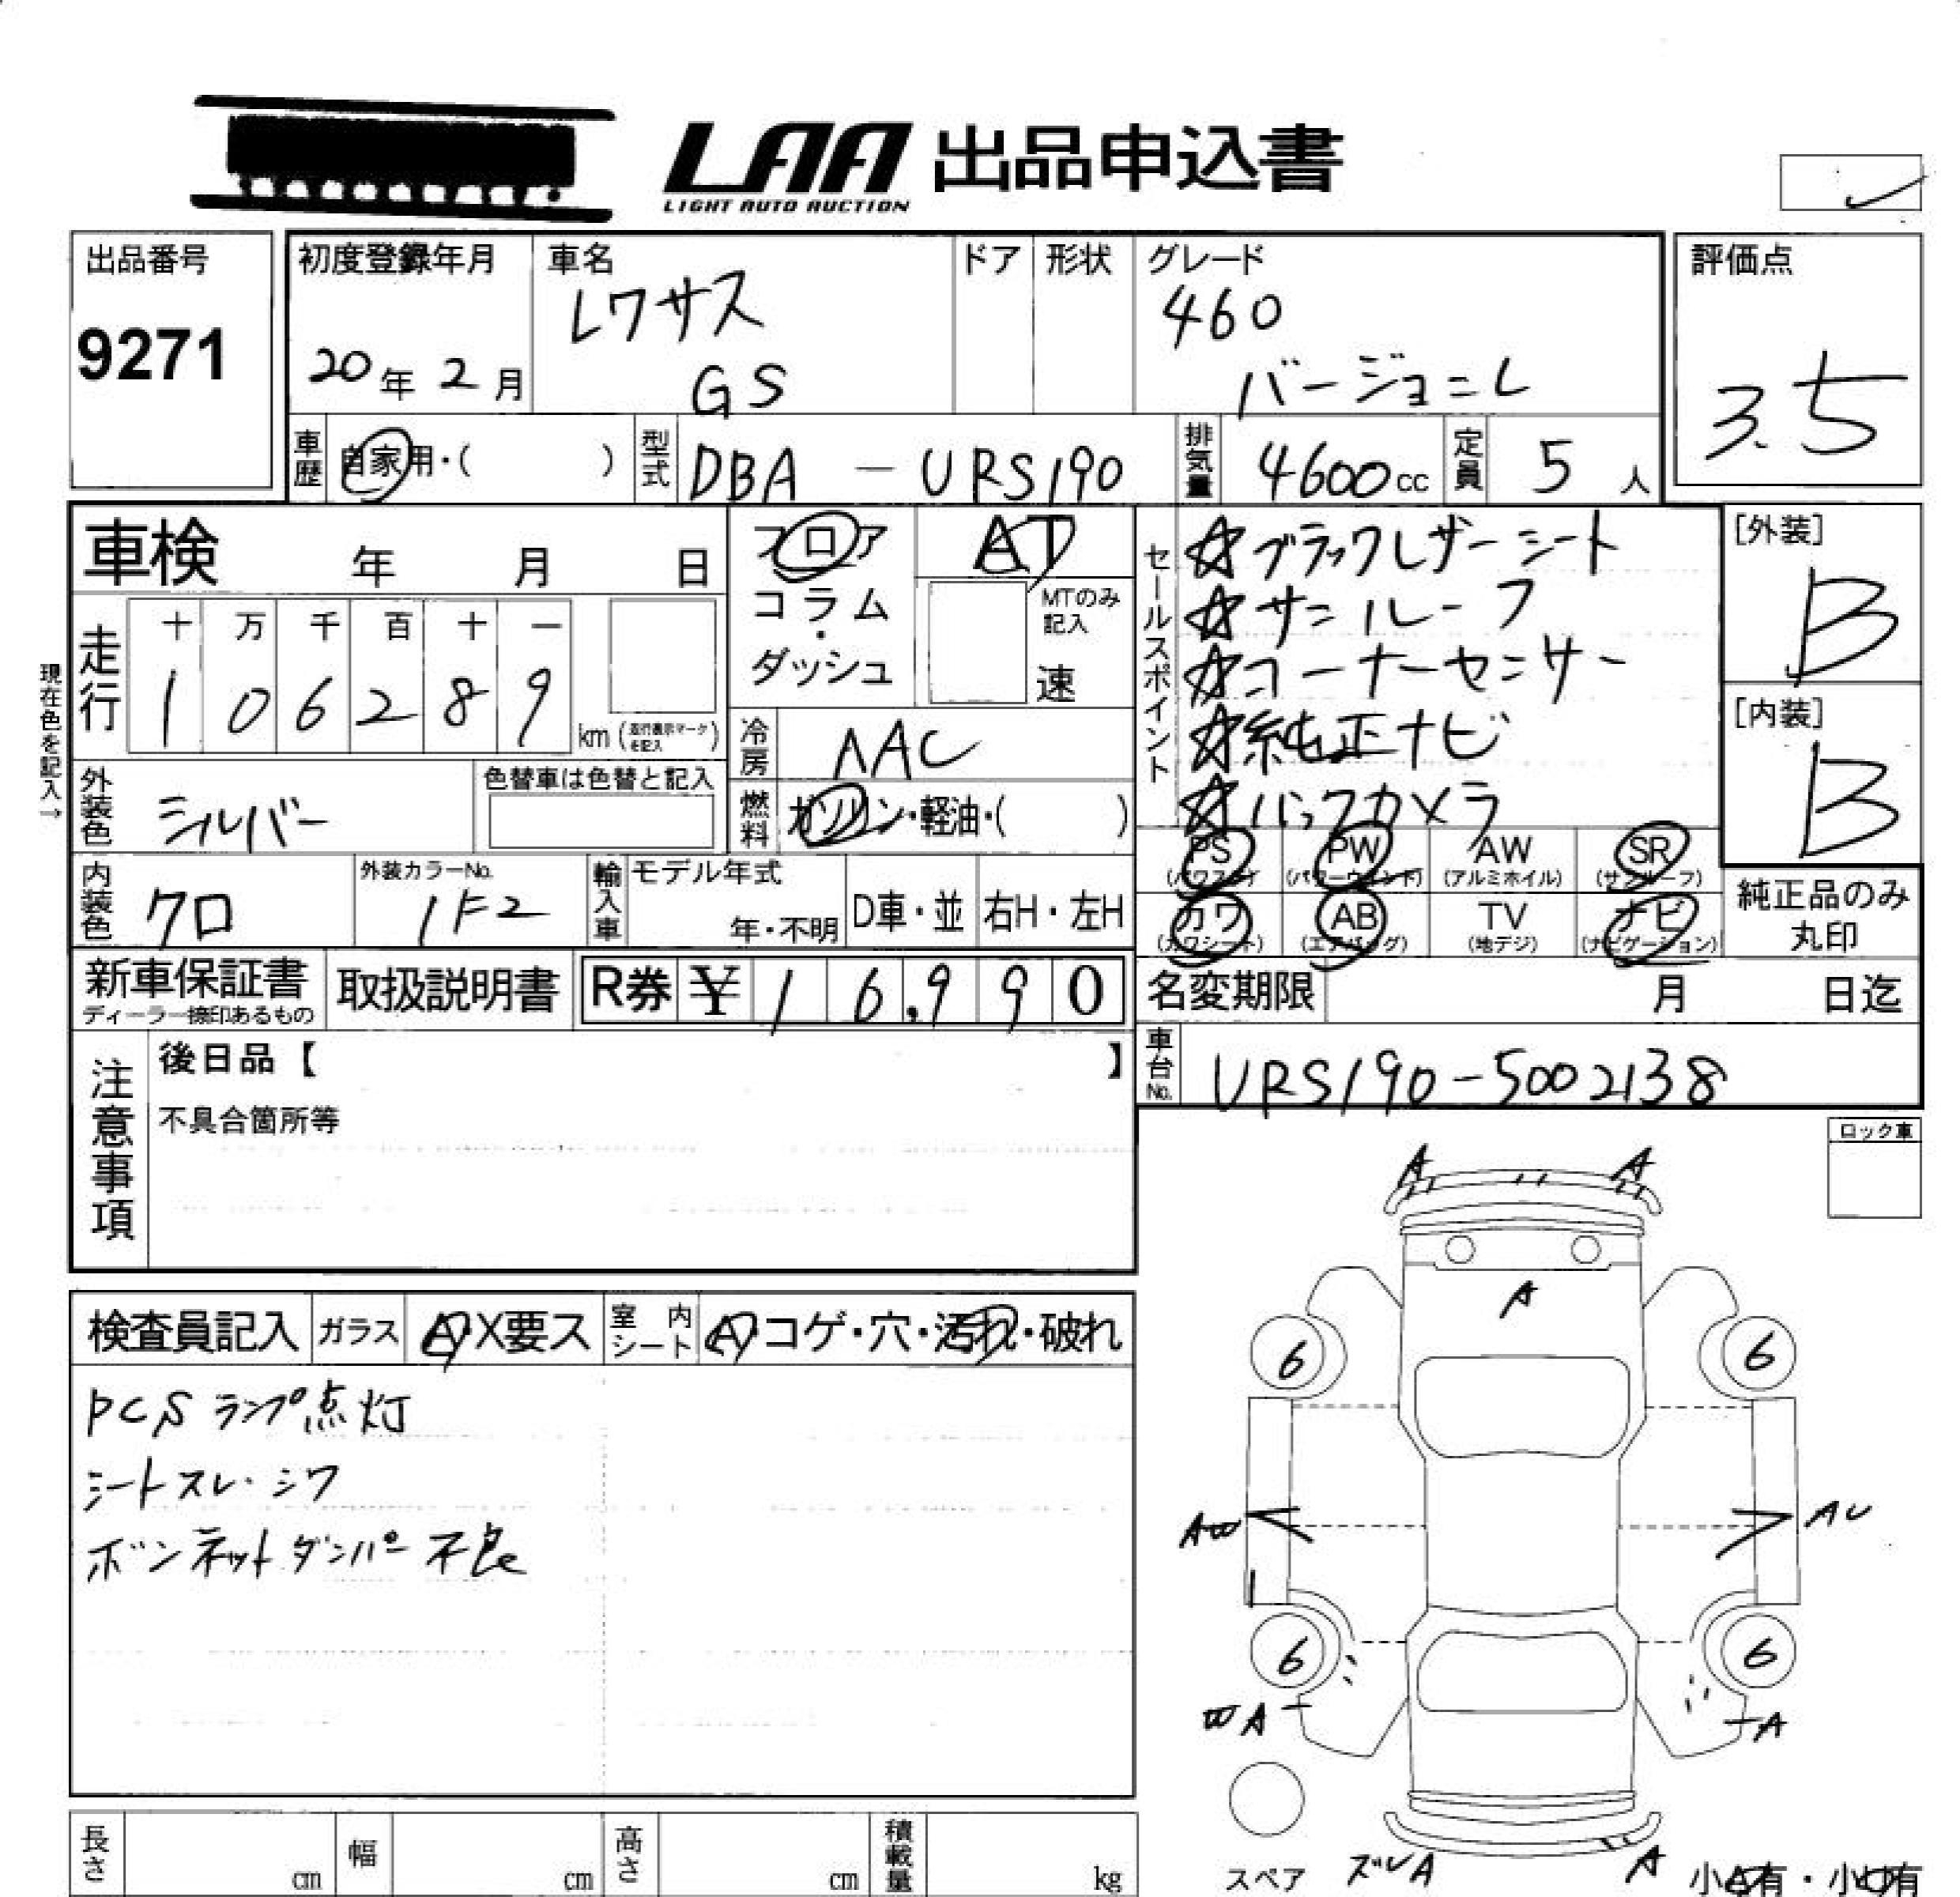 LAA 出品申込書
LIGHT AUTO AUCTION
出品番号
9271
初度登録年月
20年 2月
車名
レクサス
GS
ドア
形状
グレード
460
バージョンL
評価点
3.5
車歴
自家用・( )
型式
DBA - URS190
排気量
4600cc
定員
5人
車検 年 月 日
フロア
コラム・ダッシュ
AT
MTのみ記入
速
走行
十 万 千 百 十 一
1 0 6 2 8 9
km (走行表示マークを記入)
現在色を記入→
冷房
AAC
燃料
ガソリン・軽油・( )
外装色
シルバー
色替車は色替と記入
内装色
クロ
外装カラーNo.
1F2
輸入車
モデル年式
年・不明
D車・並
右H・左H
セールスポイント
☆ブラックレザーシート
☆サンルーフ
☆コーナーセンサー
☆純正ナビ
☆バックカメラ
[外装]
B
[内装]
B
PS
(パワステ)
PW
(パワーウィンド)
AW
(アルミホイル)
SR
(サンルーフ)
カワ
(カワシート)
AB
(エアバッグ)
TV
(地デジ)
ナビ
(ナビゲーション)
純正品のみ
丸印
新車保証書
ディーラー捺印あるもの
取扱説明書
R券 ¥ 1 6,9 9 0
名変期限 月 日迄
車台No.
URS190-5002138
注意事項
後日品【 】
不具合箇所等
ロック車
検査員記入
ガラス
A・X要ス
室内シート
A・コゲ・穴・汚れ・破れ
PCSランプ点灯
シートスレ・シワ
ボンネットダンパー不良
A A
A
6 6
AU
6 6
A A
スペア
ズレA
A
小A有・小U有
長さ cm
幅 cm
高さ cm
積載量 kg